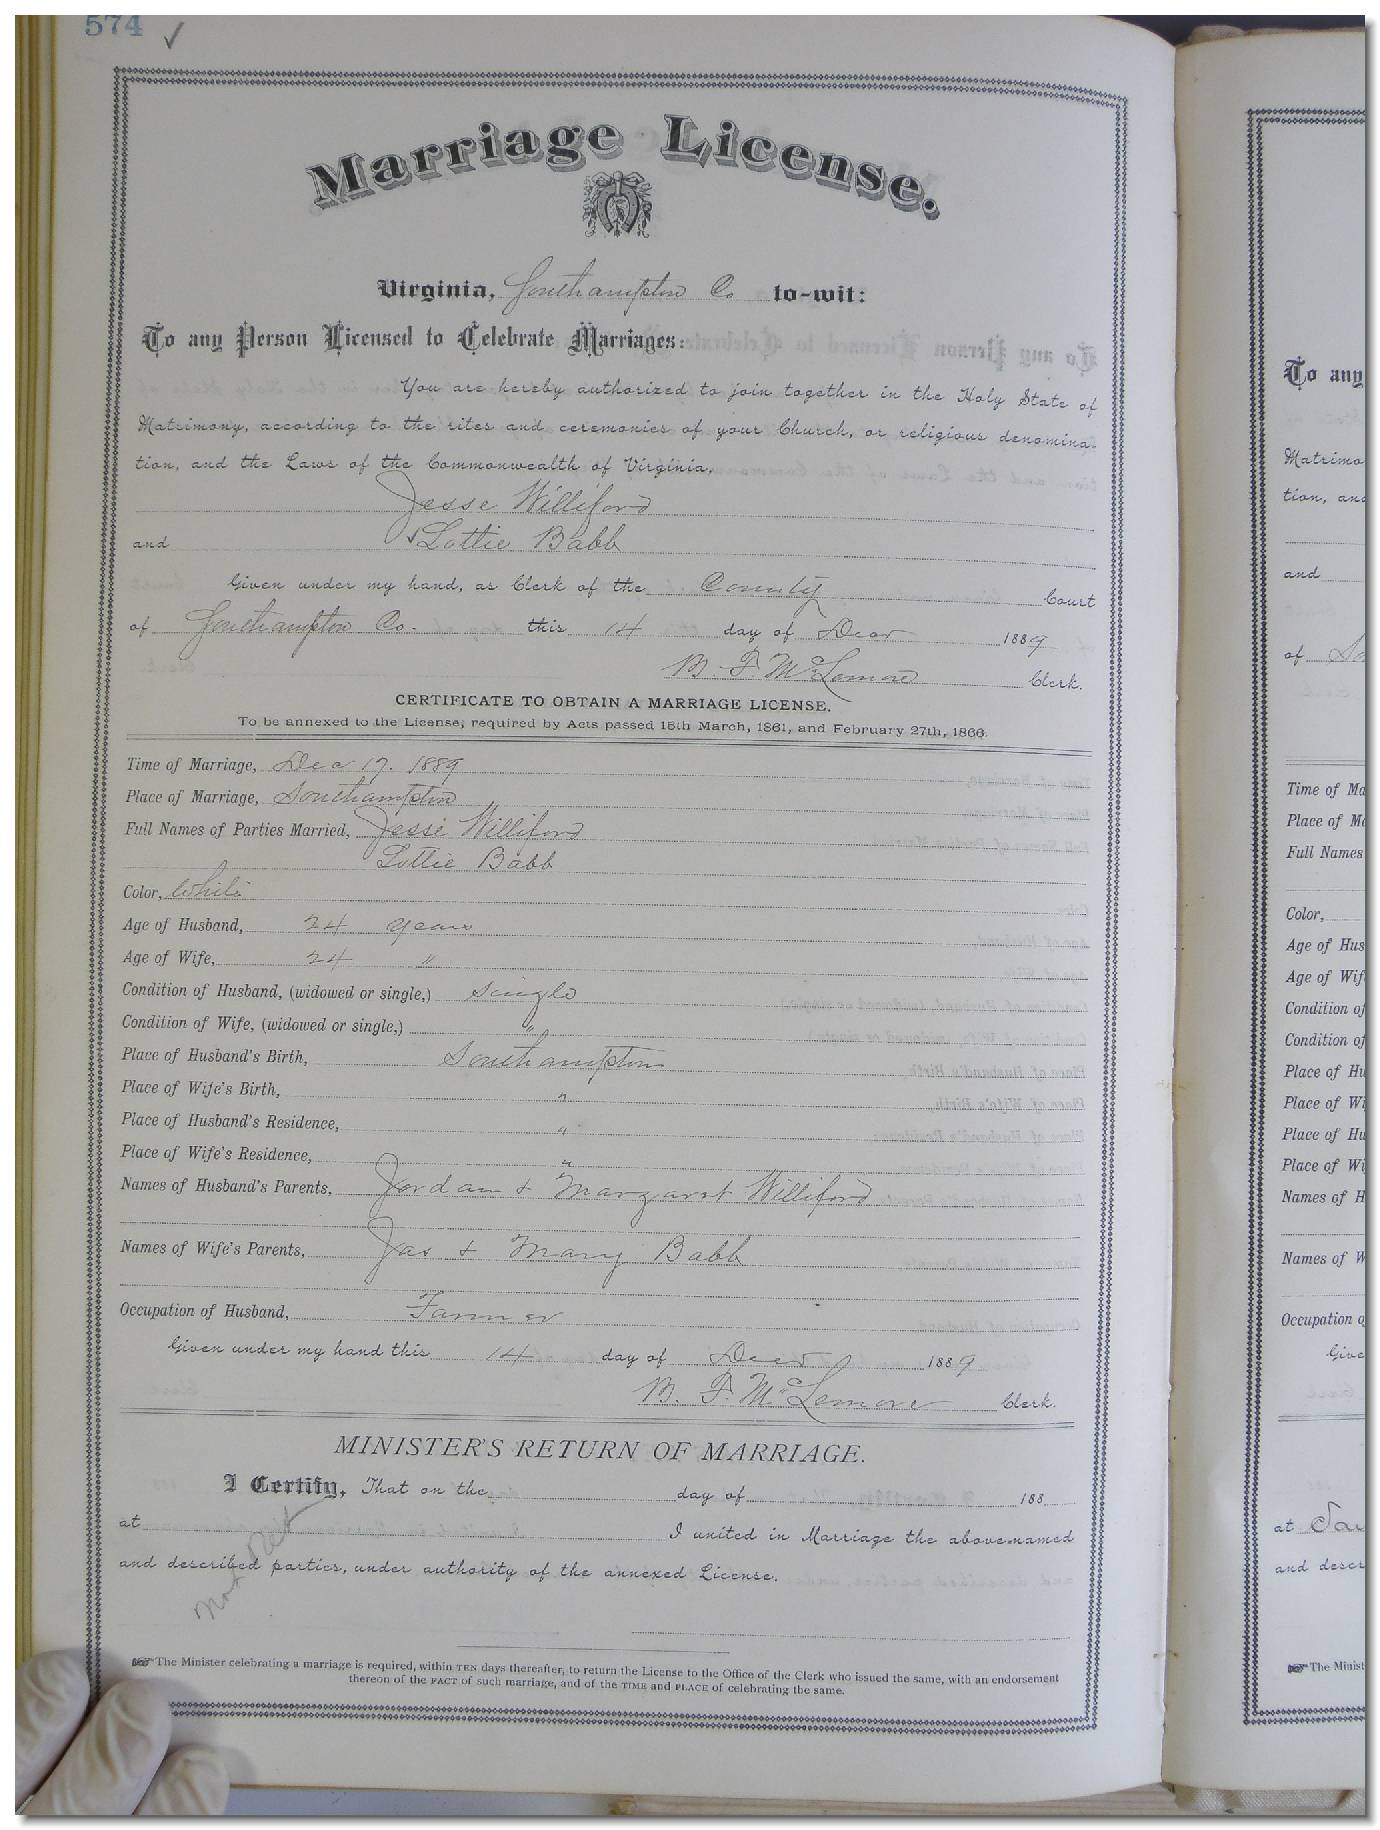 574 ✓
Marriage License.
Virginia, Southampton Co to-wit:
To any Person Licensed to Celebrate Marriages:
You are hereby authorized to join together in the Holy State of
Matrimony, according to the rites and ceremonies of your Church, or religious denomina-
tion, and the Laws of the Commonwealth of Virginia,
Jesse Williford
and Lottie Babb
Given under my hand, as Clerk of the County Court
of Southampton Co. this 14 day of Decr 1889
B F McLemore Clerk.
CERTIFICATE TO OBTAIN A MARRIAGE LICENSE.
To be annexed to the License, required by Acts passed 15th March, 1861, and February 27th, 1866.
Time of Marriage, Dec 17. 1889
Place of Marriage, Southampton
Full Names of Parties Married, Jesse Williford
Lottie Babb
Color, White
Age of Husband, 24 years
Age of Wife, 24 "
Condition of Husband, (widowed or single,) Single
Condition of Wife, (widowed or single,) "
Place of Husband's Birth, Southampton
Place of Wife's Birth, "
Place of Husband's Residence, "
Place of Wife's Residence, "
Names of Husband's Parents, Jordan & Margaret Williford
Names of Wife's Parents, Jas & Mary Babb
Occupation of Husband, Farmer
Given under my hand this 14 day of Decr 1889
B. F. McLemore Clerk.
MINISTER'S RETURN OF MARRIAGE.
I Certify, That on the day of 188
at I united in Marriage the above-named
and described parties, under authority of the annexed License.
Not Ret
The Minister celebrating a marriage is required, within TEN days thereafter, to return the License to the Office of the Clerk who issued the same, with an endorsement
thereon of the FACT of such marriage, and of the TIME and PLACE of celebrating the same.
To any
Matrimo
tion, and
and
of So
Time of Ma
Place of Ma
Full Names
Color,
Age of Hus
Age of Wif
Condition of
Condition of
Place of Hu
Place of Wi
Place of Hu
Place of Wi
Names of H
Names of W
Occupation o
Give
at Sou
and descr
The Minist